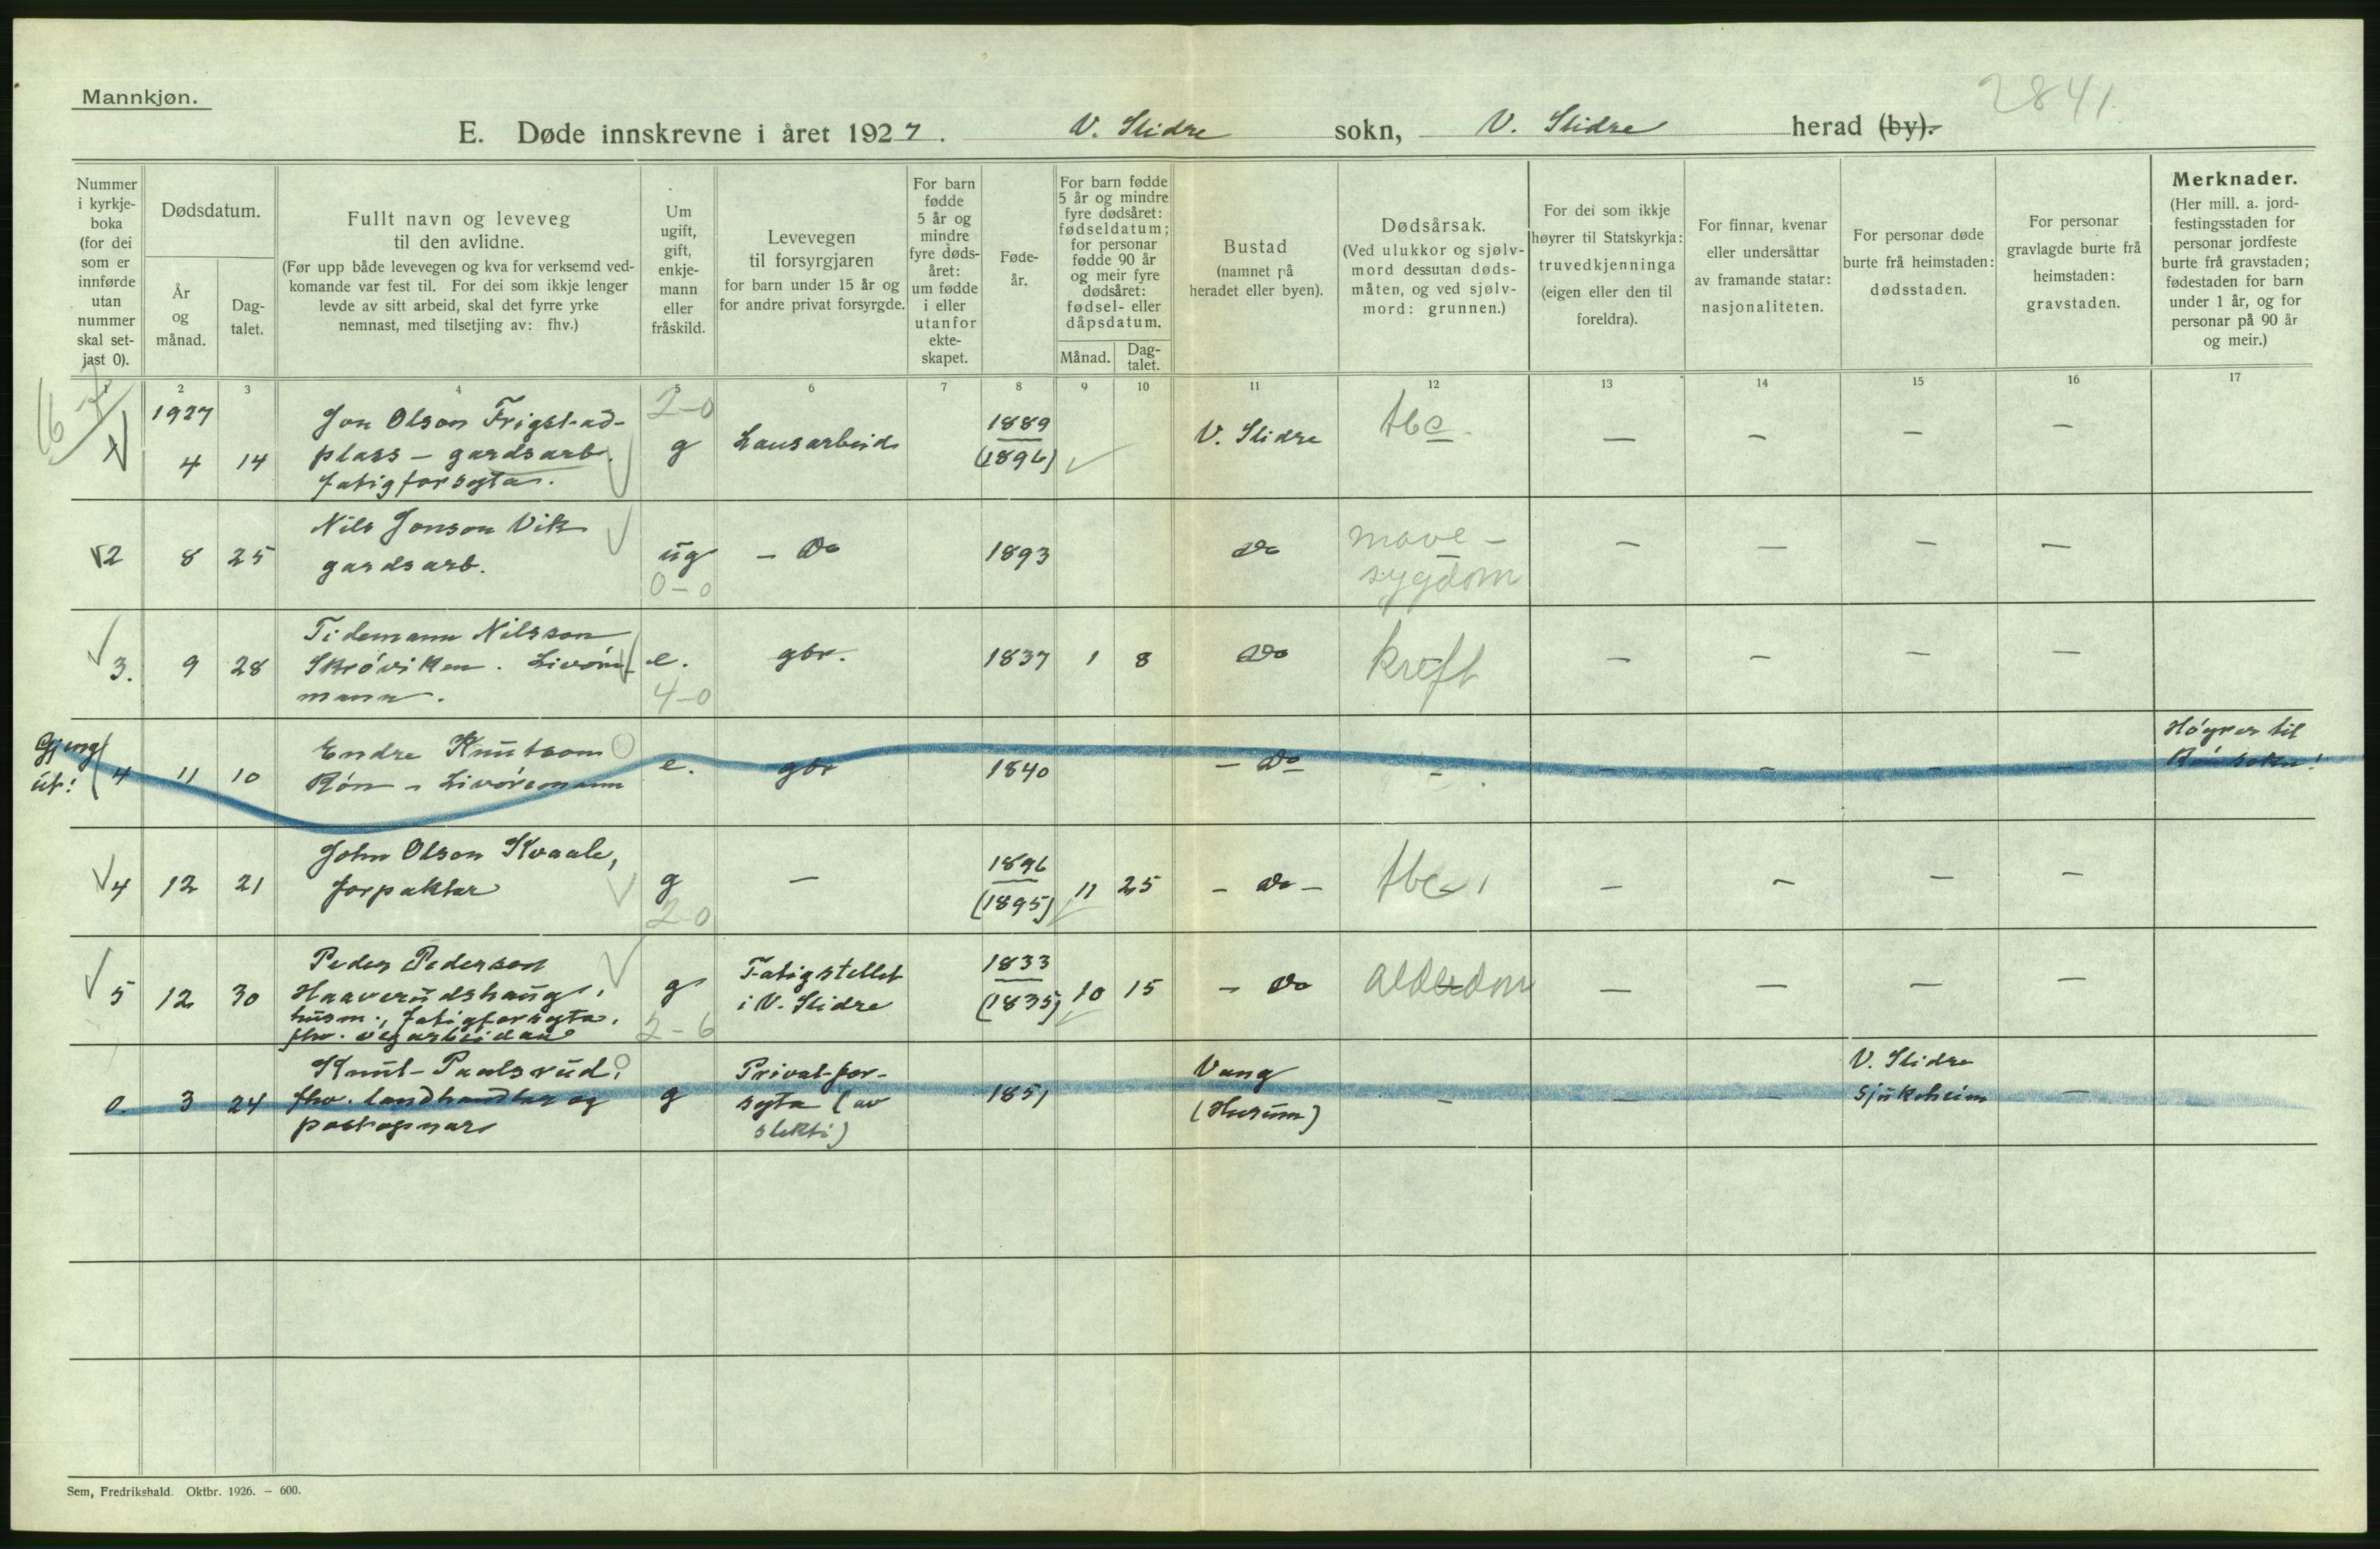 Mannkjøn.
2841.
E. Døde innskrevne i året 1927. V. Slidre sokn, V. Slidre herad (by).
Nummer
i kyrkje-
boka
(for dei
som er
innførde
utan
nummer
skal set-
jast 0).
Dødsdatum.
År
og
månad.
Dag-
talet.
Fullt navn og leveveg
til den avlidne.
(Før upp både levevegen og kva for verksemd ved-
komande var fest til. For dei som ikkje lenger
levde av sitt arbeid, skal det fyrre yrke
nemnast, med tilsetjing av: fhv.)
Um
ugift,
gift,
enkje-
mann
eller
fråskild.
Levevegen
til forsyrgjaren
for barn under 15 år og
for andre privat forsyrgde.
For barn
fødde
5 år og
mindre
fyre døds-
året:
um fødde
i eller
utanfor
ekte-
skapet.
Føde-
år.
For barn fødde
5 år og mindre
fyre dødsåret:
fødseldatum;
for personar
fødde 90 år
og meir fyre
dødsåret:
fødsel- eller
dåpsdatum.
Månad.
Dag-
talet.
Bustad
(namnet på
heradet eller byen).
Dødsårsak.
(Ved ulukkor og sjølv-
mord dessutan døds-
måten, og ved sjølv-
mord: grunnen.)
For dei som ikkje
høyrer til Statskyrkja:
truvedkjenninga
(eigen eller den til
foreldra).
For finnar, kvenar
eller undersåttar
av framande statar:
nasjonaliteten.
For personar døde
burte frå heimstaden:
dødsstaden.
For personar
gravlagde burte frå
heimstaden:
gravstaden.
Merknader.
(Her mill. a. jord-
festingsstaden for
personar jordfeste
burte frå gravstaden;
fødestaden for barn
under 1 år, og for
personar på 90 år
og meir.)
1 2 3 4 5 6 7 8 9 10 11 12 13 14 15 16 17
1927
4 14
Jon Olson Frigstad-
plass - gardsarb.
fatigforsyta.
2-0
g
Lausarbeid
1889
(1896)
V. Slidre
tbc.
— — — —
2 8 25
Nils Jonson Vik
gardsarb.
ug
0-0
- Do
1893
Do
mave-
sygdom
— — — —
3. 9 28
Tidemann Nilsson
Skrøviken. Livøre-
mann.
e.
4-0
gbr.
1837 1 8
Do
kreft
— — — —
Gjeng
ut!
4 11 10
Endre Knutson
Røn - Livøremann
e.
gbr
1840
- Do
- — — — —
Høyrer til
Røn sokn!
4 12 21
John Olson Kvaale,
forpaktar
g
2-0
—
1896
(1895)
11 25
- Do -
tbc.
— — — —
5 12 30
Peder Pederson
Haaverudshaug,
husm., fatigforsyta.
fhv. vegarbeidar
g
2-6
Fatigstellet
i V. Slidre
1833
(1835)
10 15
- Do
alderdom
— — — —
0. 3 24
Knut Paalsrud.
fhv. landhandlar og
postopnar
g
Privat-for-
syta (av
slekti)
1851
Vang
(Hurum)
- — —
V. Slidre
Sjukeheim
—
Sem, Fredrikshald. Oktbr. 1926. — 600.